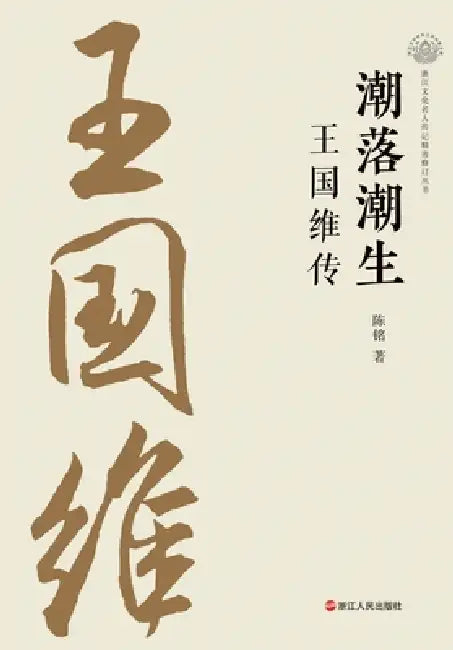 浙江文化名人传记精选修订丛书
潮落潮生
王国维传
陈铭 著
王国维
浙江人民出版社